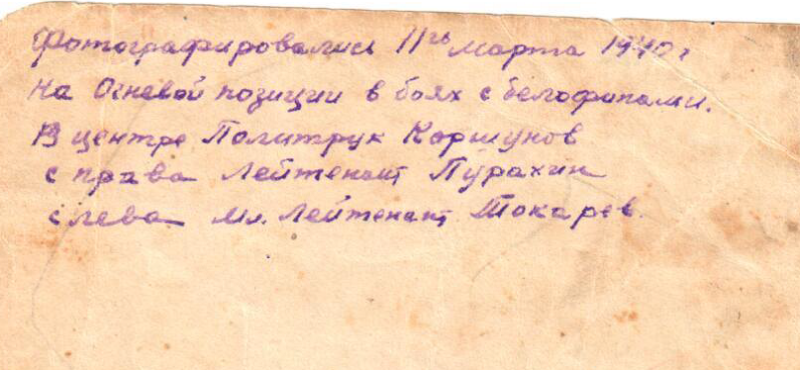 Фотографировались 11го марта 1940 г
На Огневой позиции в боях с белофинами.
В центре Политрук Коршунов
с права Лейтенант Пурахин
слева Мл. Лейтенант Токарев.